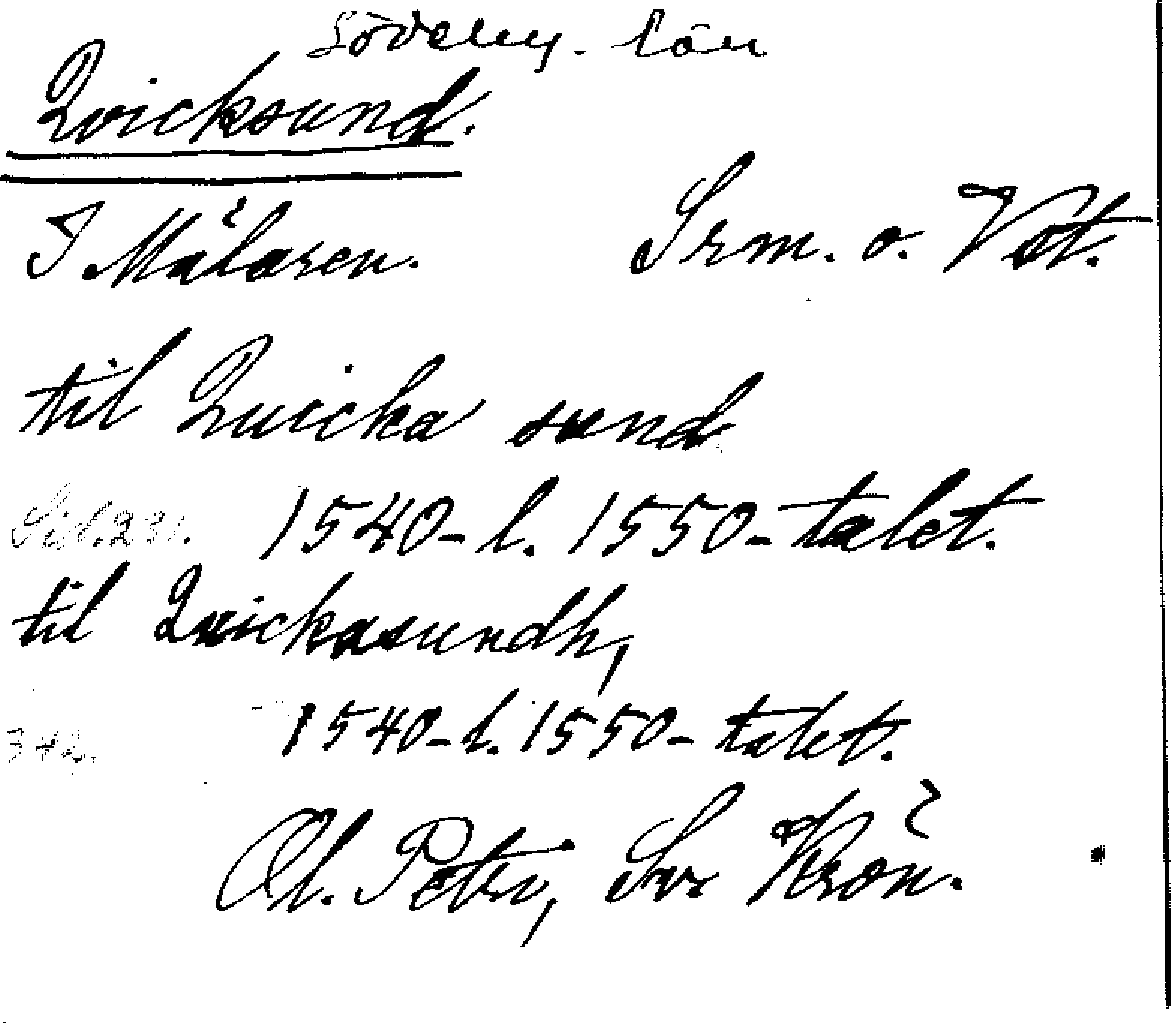 Söderby-Län
Qvicksund.
I Mälaren. Srm. o. Vst.
til Quicka sund
Sid. 291. 1540-l. 1550-talet.
til Quickasundh,
342. 1540-l. 1550-talet.
Ol. Petri, Sv. Krön.